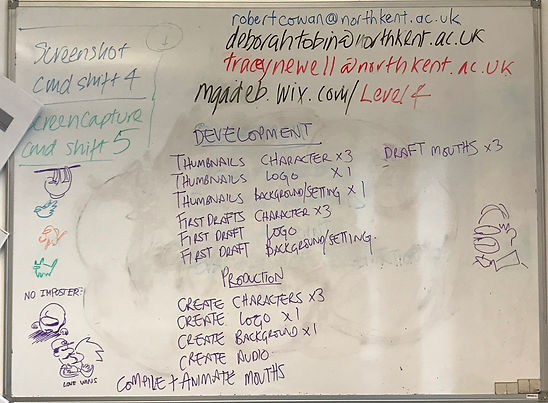 robertcowan@northkent.ac.uk
deborahtobin@northkent.ac.uk
traceynewell@northkent.ac.uk
mgadeb.wix.com/Level4
Screenshot
cmd shift 4
1
Screencapture
cmd shift 5
DEVELOPMENT
THUMBNAILS CHARACTER x3
DRAFT MOUTHS x3
THUMBNAILS LOGO x1
THUMBNAILS BACKGROUND/SETTING x1
FIRST DRAFTS CHARACTER x3
FIRST DRAFT LOGO
FIRST DRAFT BACKGROUND/SETTING.
PRODUCTION
CREATE CHARACTERS x3
CREATE LOGO x1
CREATE BACKGROUND x1
CREATE AUDIO
COMPILE + ANIMATE MOUTHS
NO IMPOSTER:
LOVE WINS